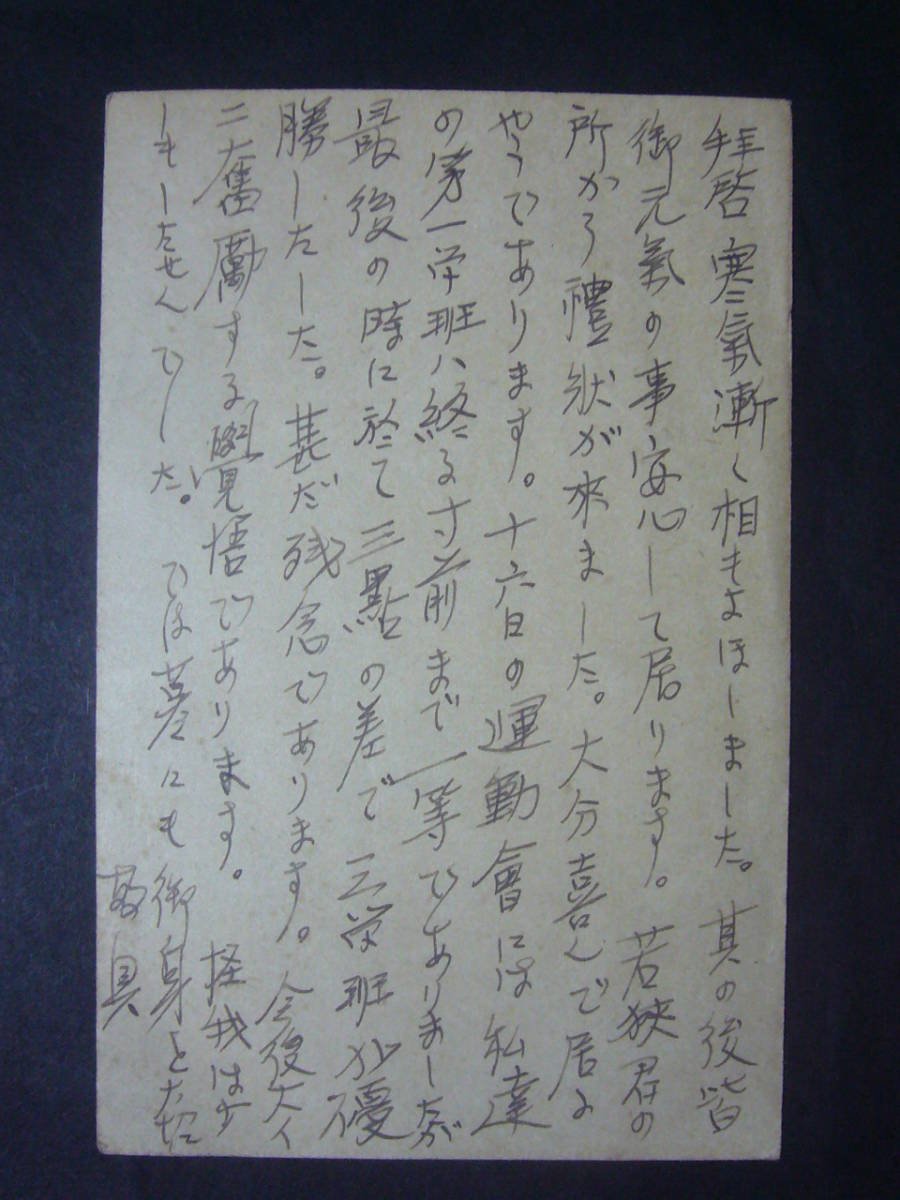 拝啓 寒氣漸く相もよほしました。其の後皆
御元氣の事安心して居ります。若狹君の
所から禮狀が來ました。大分喜んで居る
やうであります。十六日の運動會には私達
の第一学班ハ終る寸前まで一等でありましたが
最後の時に於て三點の差で三学班が優
勝しました。甚だ残念であります。今後大イ
ニ奮勵する覺悟であります。怪我は少
しもしませんでした。では 御身を大切に
敬具